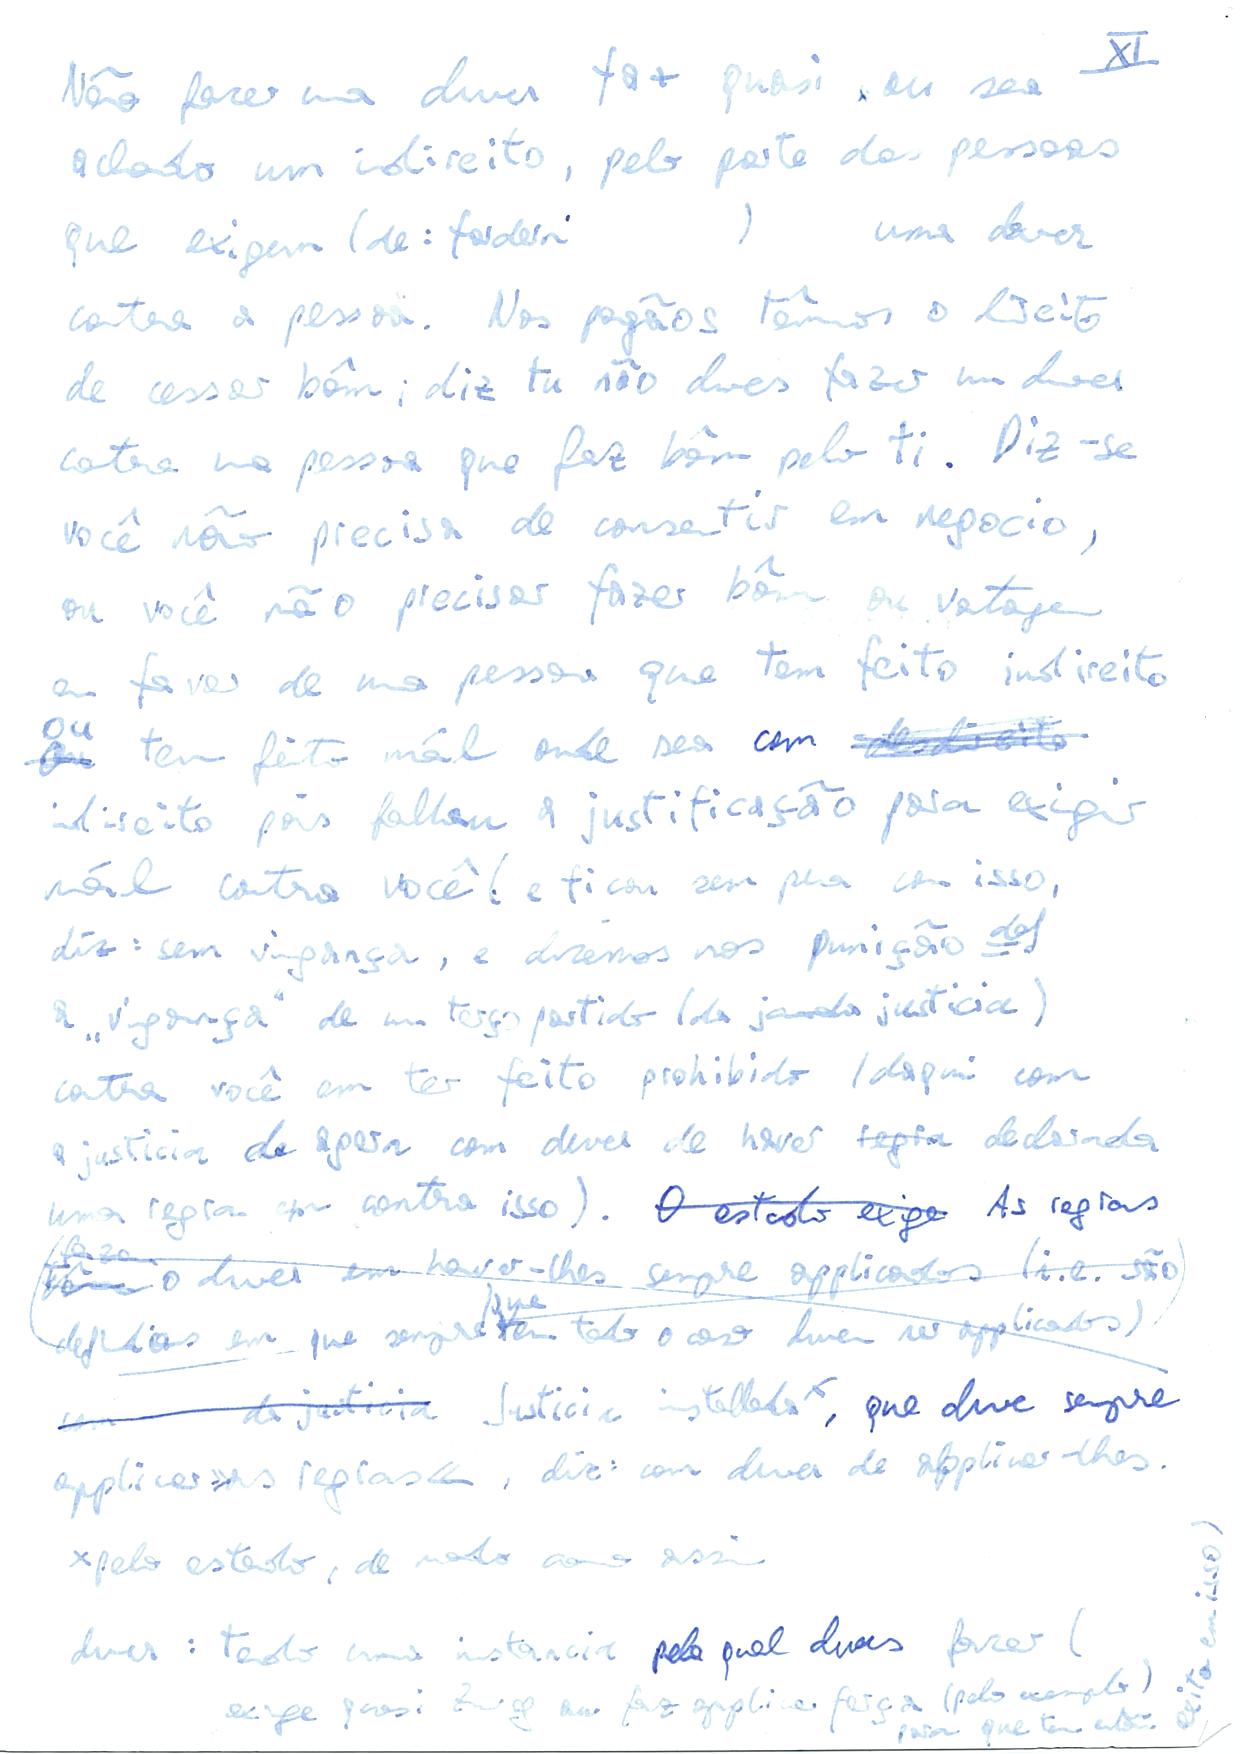 XI
Não fazer uma dever faz quasi, ou sea
achado um indireito, pelo parte das pessoas
que exigem (de: fordern ) uma dever
contra a pessoa. Nos pagãos têmos o lìcito
de cessar bôm; diz tu não dves fazer um dever
contra uma pessoa que faz bôm pelo ti. Diz-se
você não precisa de consentir em negocio,
ou você não precisar fazer bôm ou vatagem
em favor de uma pessoa que tem feito indireito
ou tem feito mál onde sea com desdireito
indireito pois falhou a justificação para exigir
mál contra você (e ficou sem pena com isso,
diz: sem vingança, e dizemos nos punição def
a „vingança“ de um terço partido (da justicia)
contra você em ter feito prohibido (daqui com
a justicia de agora com dever de haver regra declarada
uma regra em contra isso). O estado exige As regras
faze
têm o dever em haver-lhes sempre applicados (i.e. são
que
em que sempre em todo o caso devem ser applicados)
da justicia Justicia installada x, que deve sempre
applicar as regras, diz: com dever de applicar-lhes.
x pelo estado, de modo como assim
dever: tendo uma instancia pela qual deves fazer (
exige quasi ou faz applicar força (pelo exemplo)
para que tem
exito em isso)